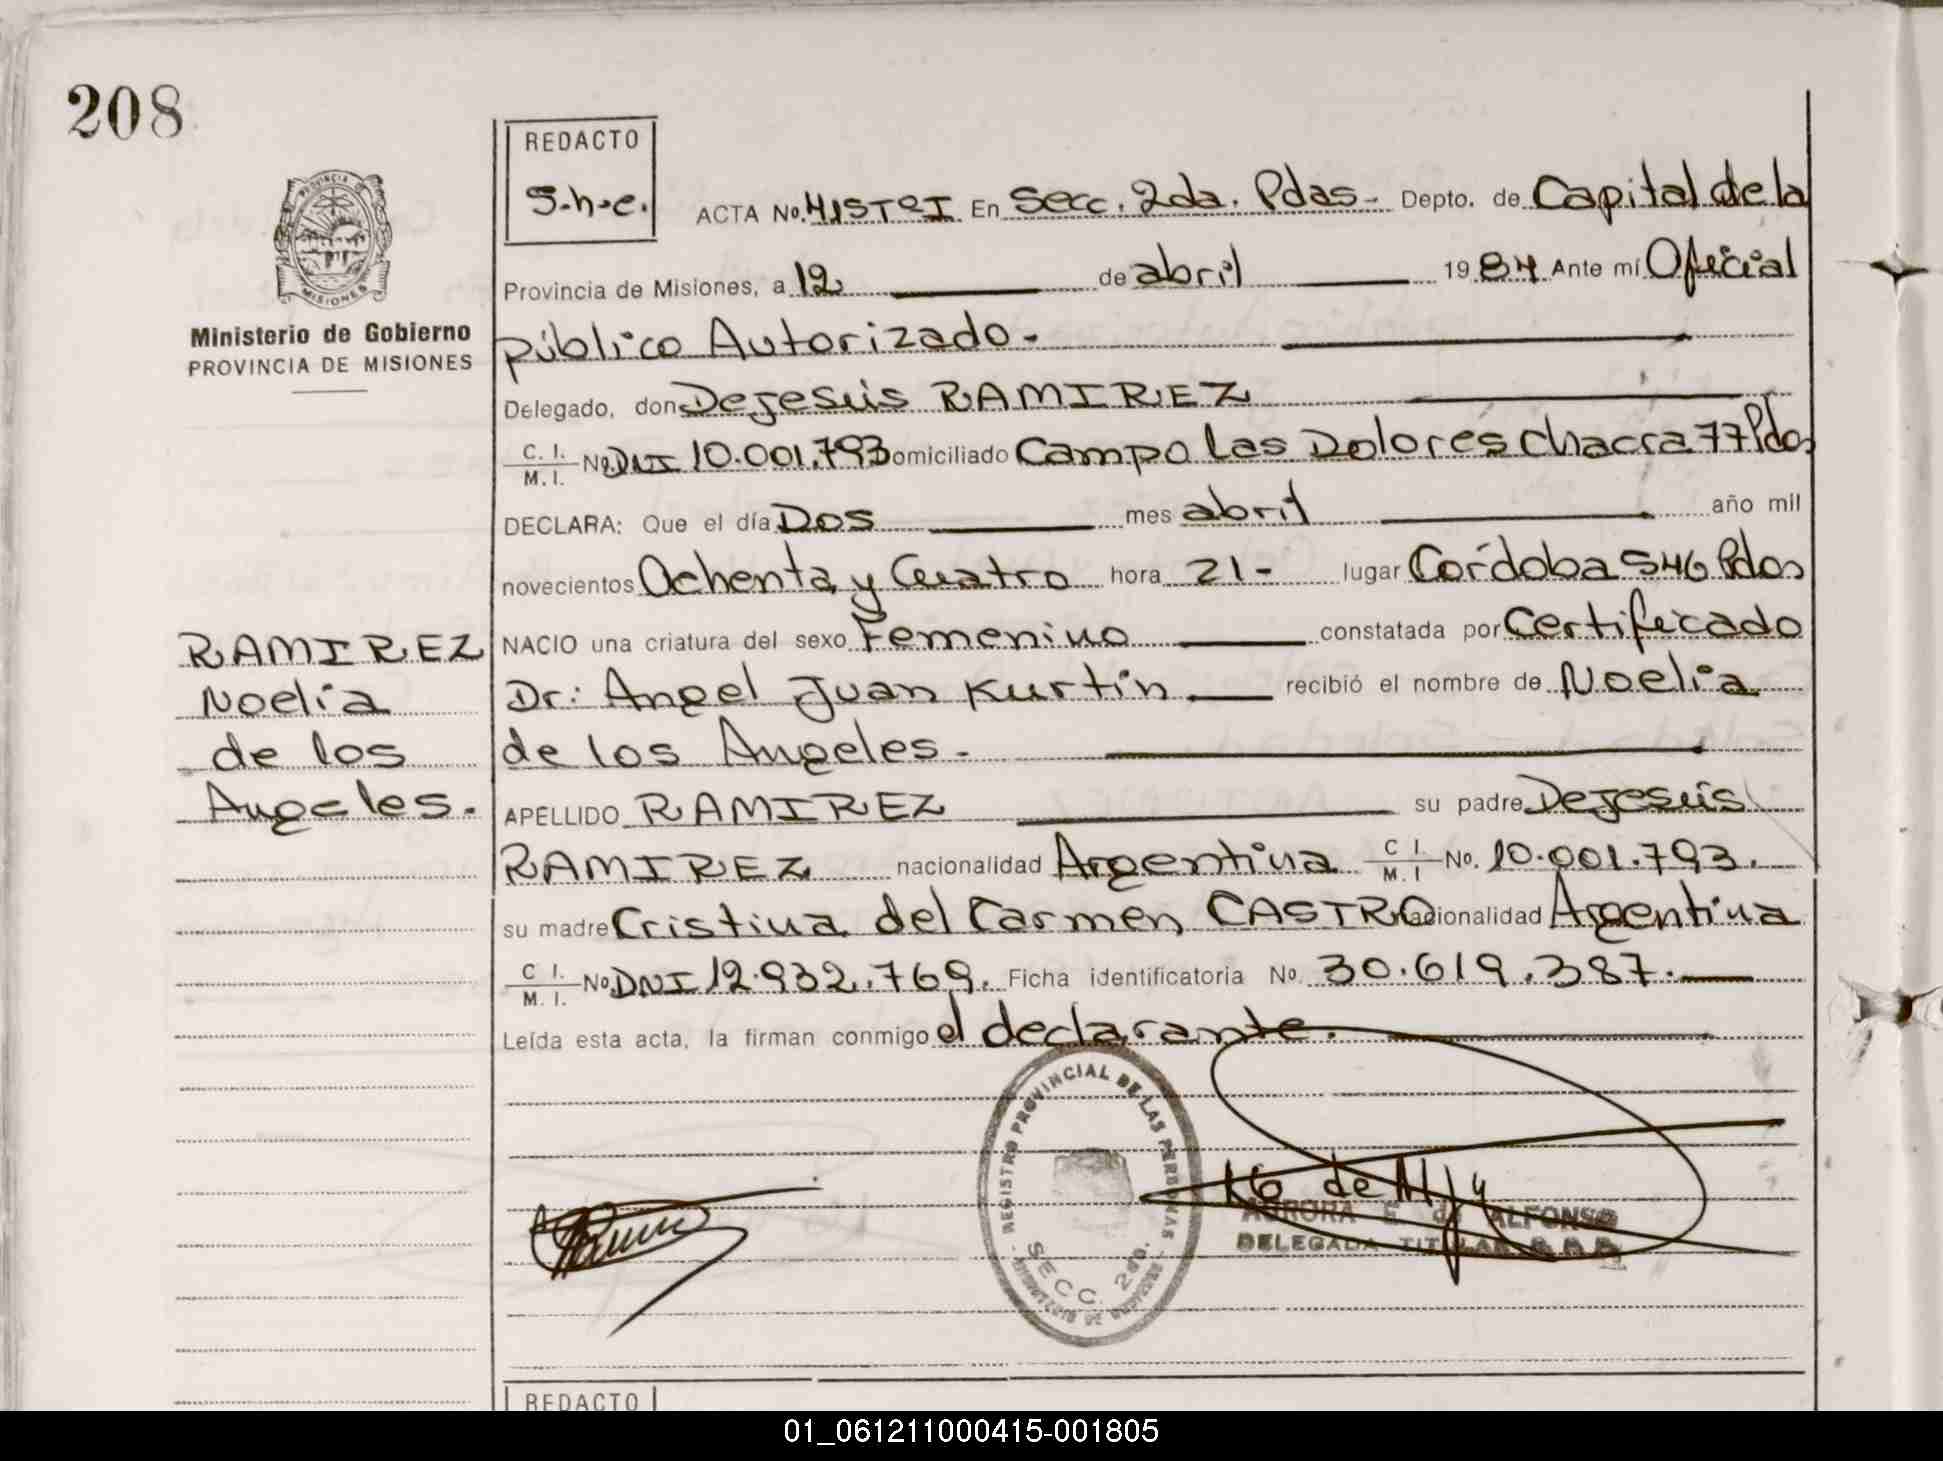 208
REDACTO
S.h.c.
ACTA No. 415 T°I En Secc. 2da. Pdas. Depto. de Capital de la
PROVINCIA DE
MISIONES
Provincia de Misiones, a 12 de abril 1984 Ante mí Oficial
Ministerio de Gobierno
PROVINCIA DE MISIONES
público Autorizado.
Delegado, don Dejesús RAMIREZ
C. I.
M. I. No. DNI 10.001.793 Domiciliado Campo Las Dolores Chacra 77 Pdas
DECLARA: Que el día Dos mes abril año mil
novecientos Ochenta y Cuatro hora 21- lugar Córdoba 546 Pdas
NACIO una criatura del sexo Femenino constatada por Certificado
Dr: Angel Juan Kurtin recibió el nombre de Noelia
de los Angeles.
RAMIREZ
Noelia
de los
Angeles.
APELLIDO RAMIREZ su padre Dejesús
RAMIREZ nacionalidad Argentina C I.
M. I No. 10.001.793.
su madre Cristina del Carmen CASTRO nacionalidad Argentina
C I.
M. I. No DNI 12.932.769. Ficha identificatoria No. 30.619.387.
Leída esta acta, la firman conmigo el declarante.
REGISTRO PROVINCIAL DE LAS PERSONAS
SECC. 2da.
AURORA E. de ALFONSO
DELEGADA TITULAR
REDACTO
01_061211000415-001805